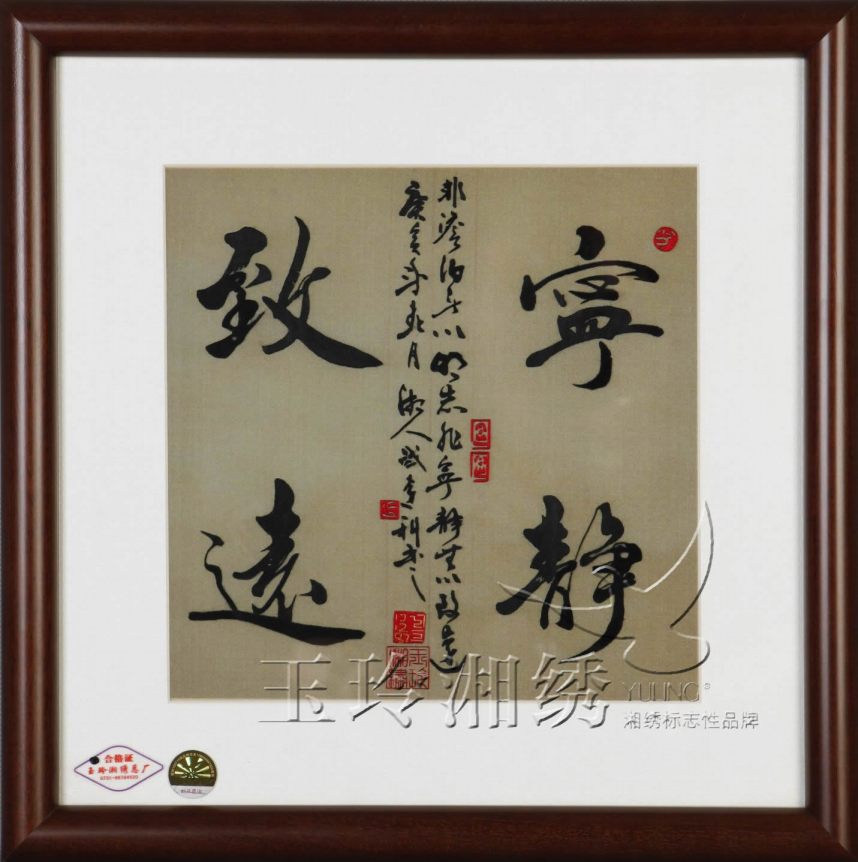 寧靜
非澹泊無以明志非寧靜無以致遠
月湘人
致遠
玉玲湘绣
YULING®
湘绣标志性品牌
合格证
玉玲湘绣总厂